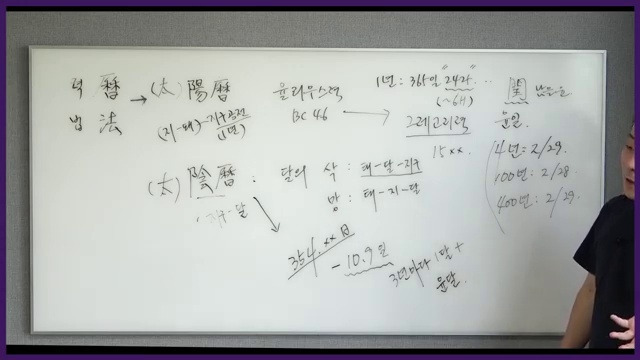 력 曆 → (太) 陽曆 율리우스력 1년: 365일 "24각" ...
법 法 (지-태) - 지구공전 (1년) BC 46 → (~6H)
그레고리력
15××
閏 남는
윤일
4년: 2/29.
100년: 2/28
400년: 2/29.
(太) 陰曆 : 달의 삭 : 태-달-지구
망 : 태-지-달
지-달
354.××日
-10.9일
3년마다 1달 +
윤달.